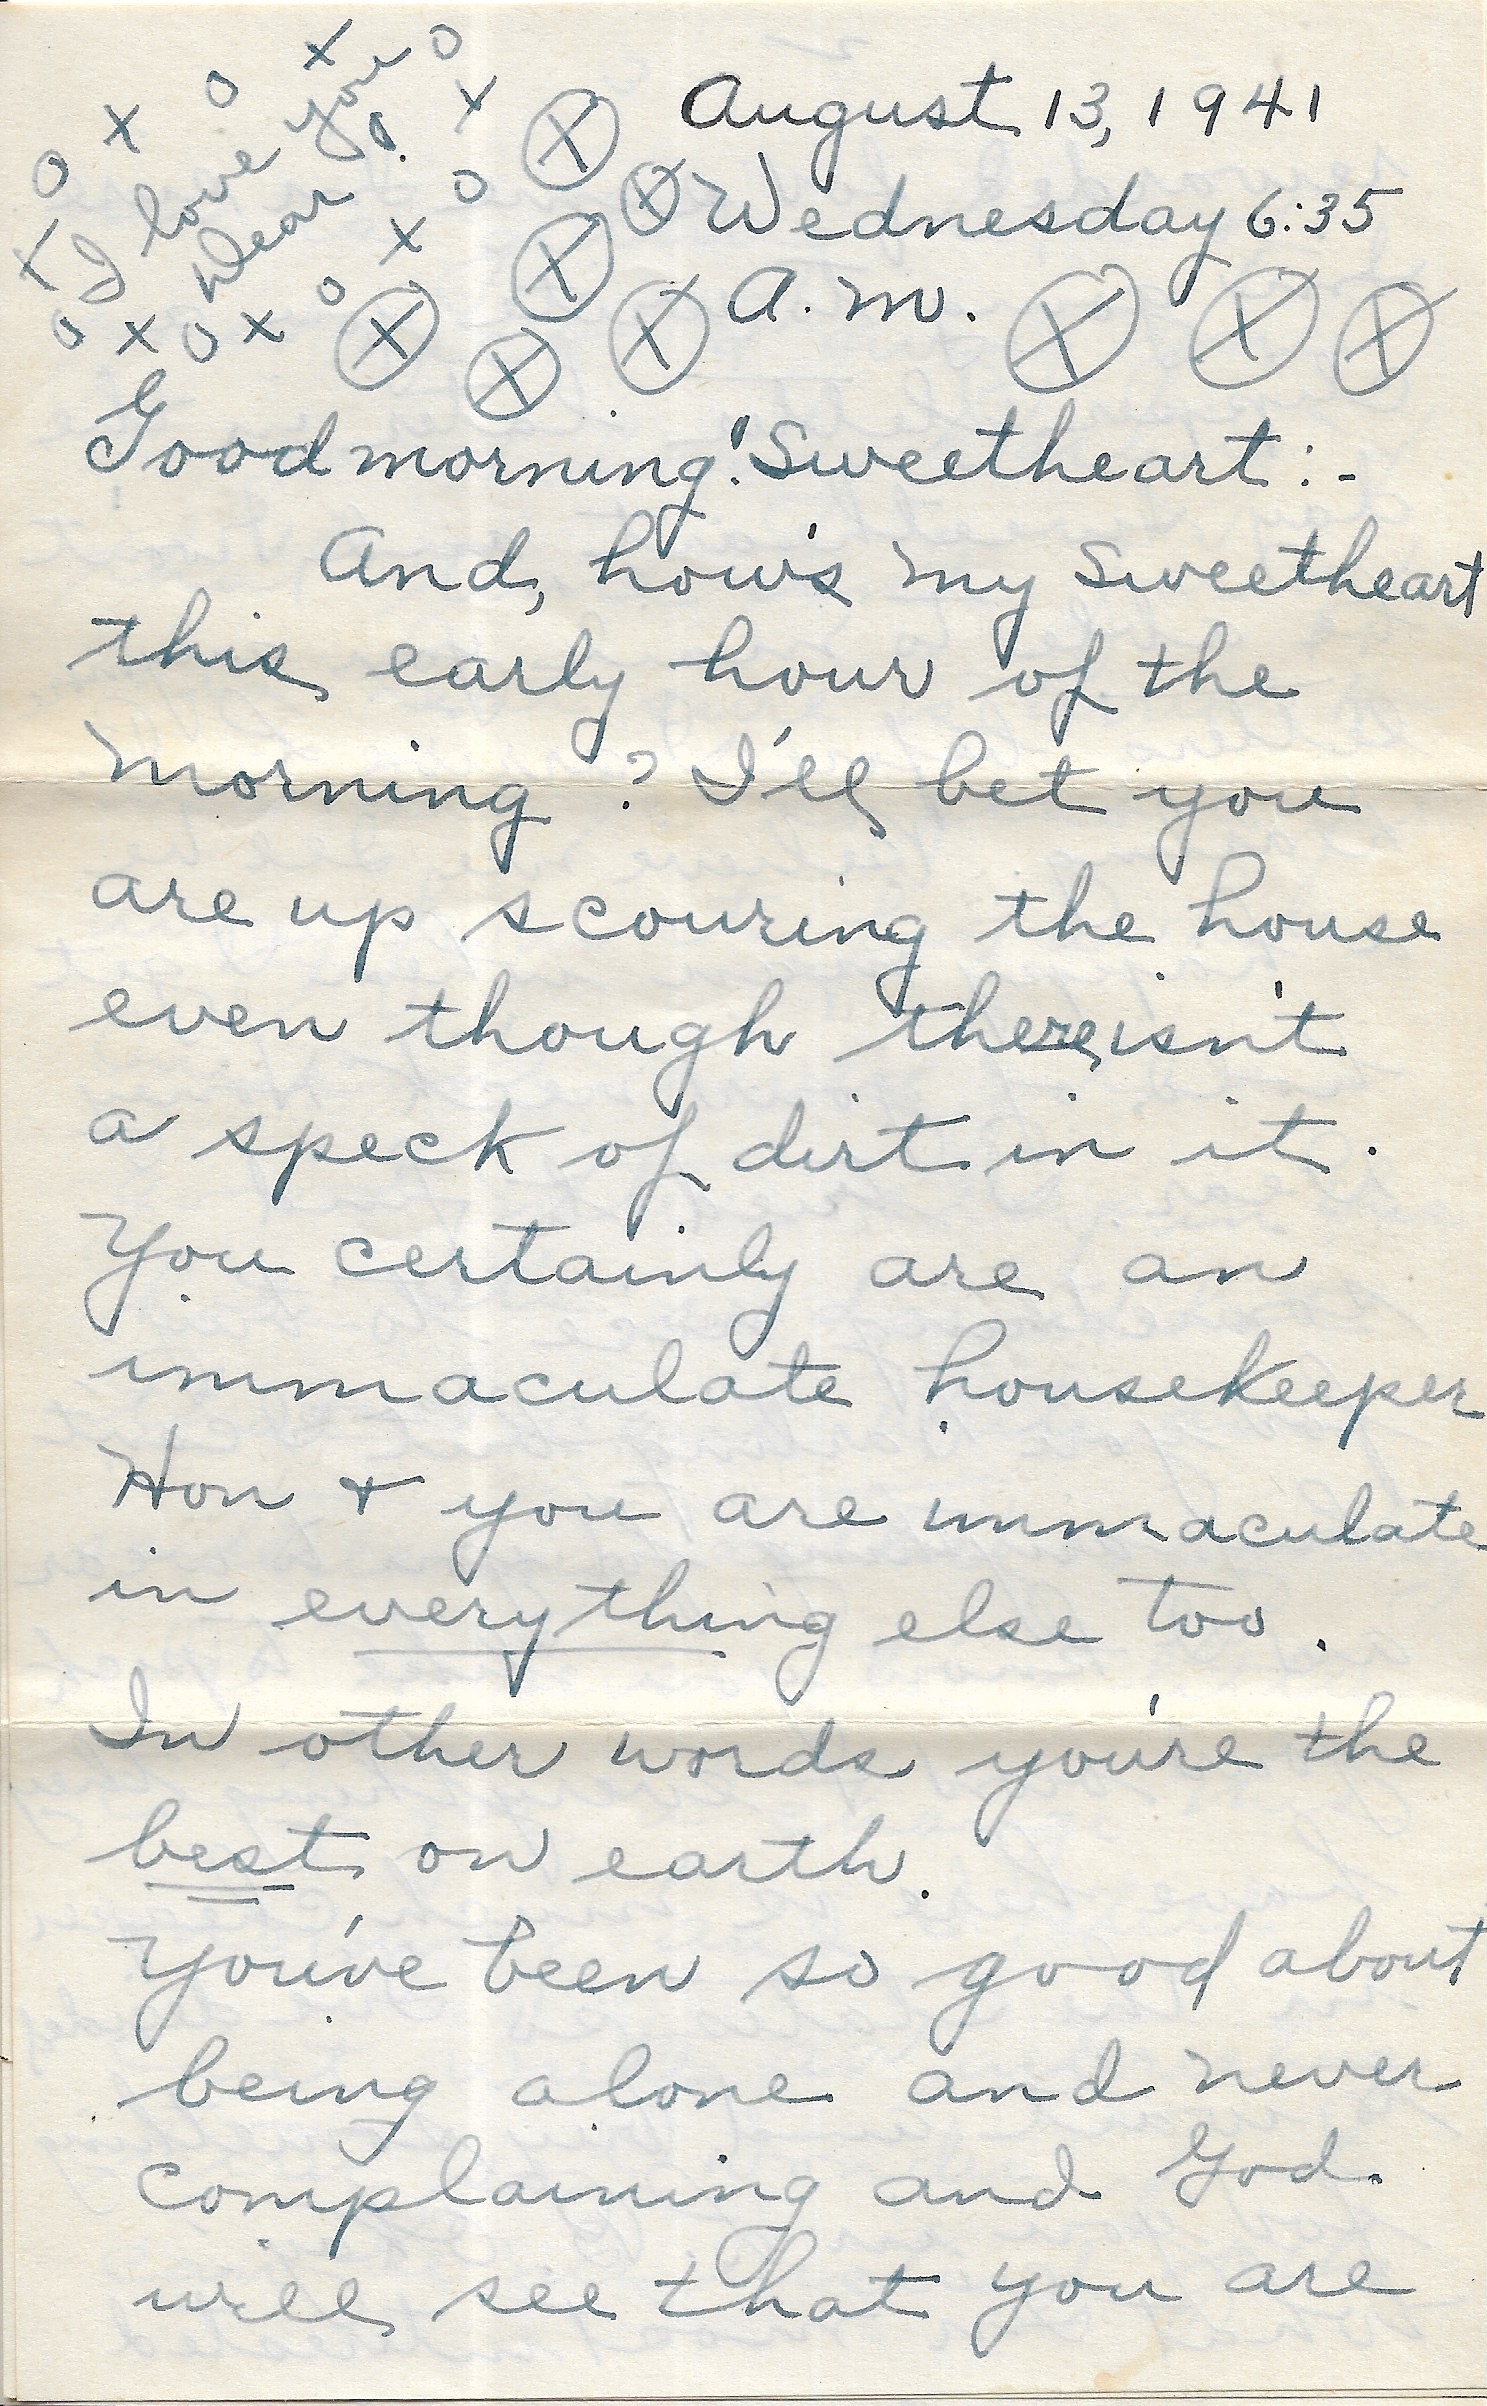 I love you
Dear.
August 13, 1941
Wednesday 6:35
A.M.
Good morning! Sweetheart:-
And, how's my Sweetheart
this early hour of the
morning? I'll bet you
are up scouring the house
even though there isn't
a speck of dirt in it.
You certainly are an
immaculate housekeeper
Hon + you are immaculate
in everything else too.
In other words you're the
best on earth.
You've been so good about
being alone and never
complaining and God
will see that you are